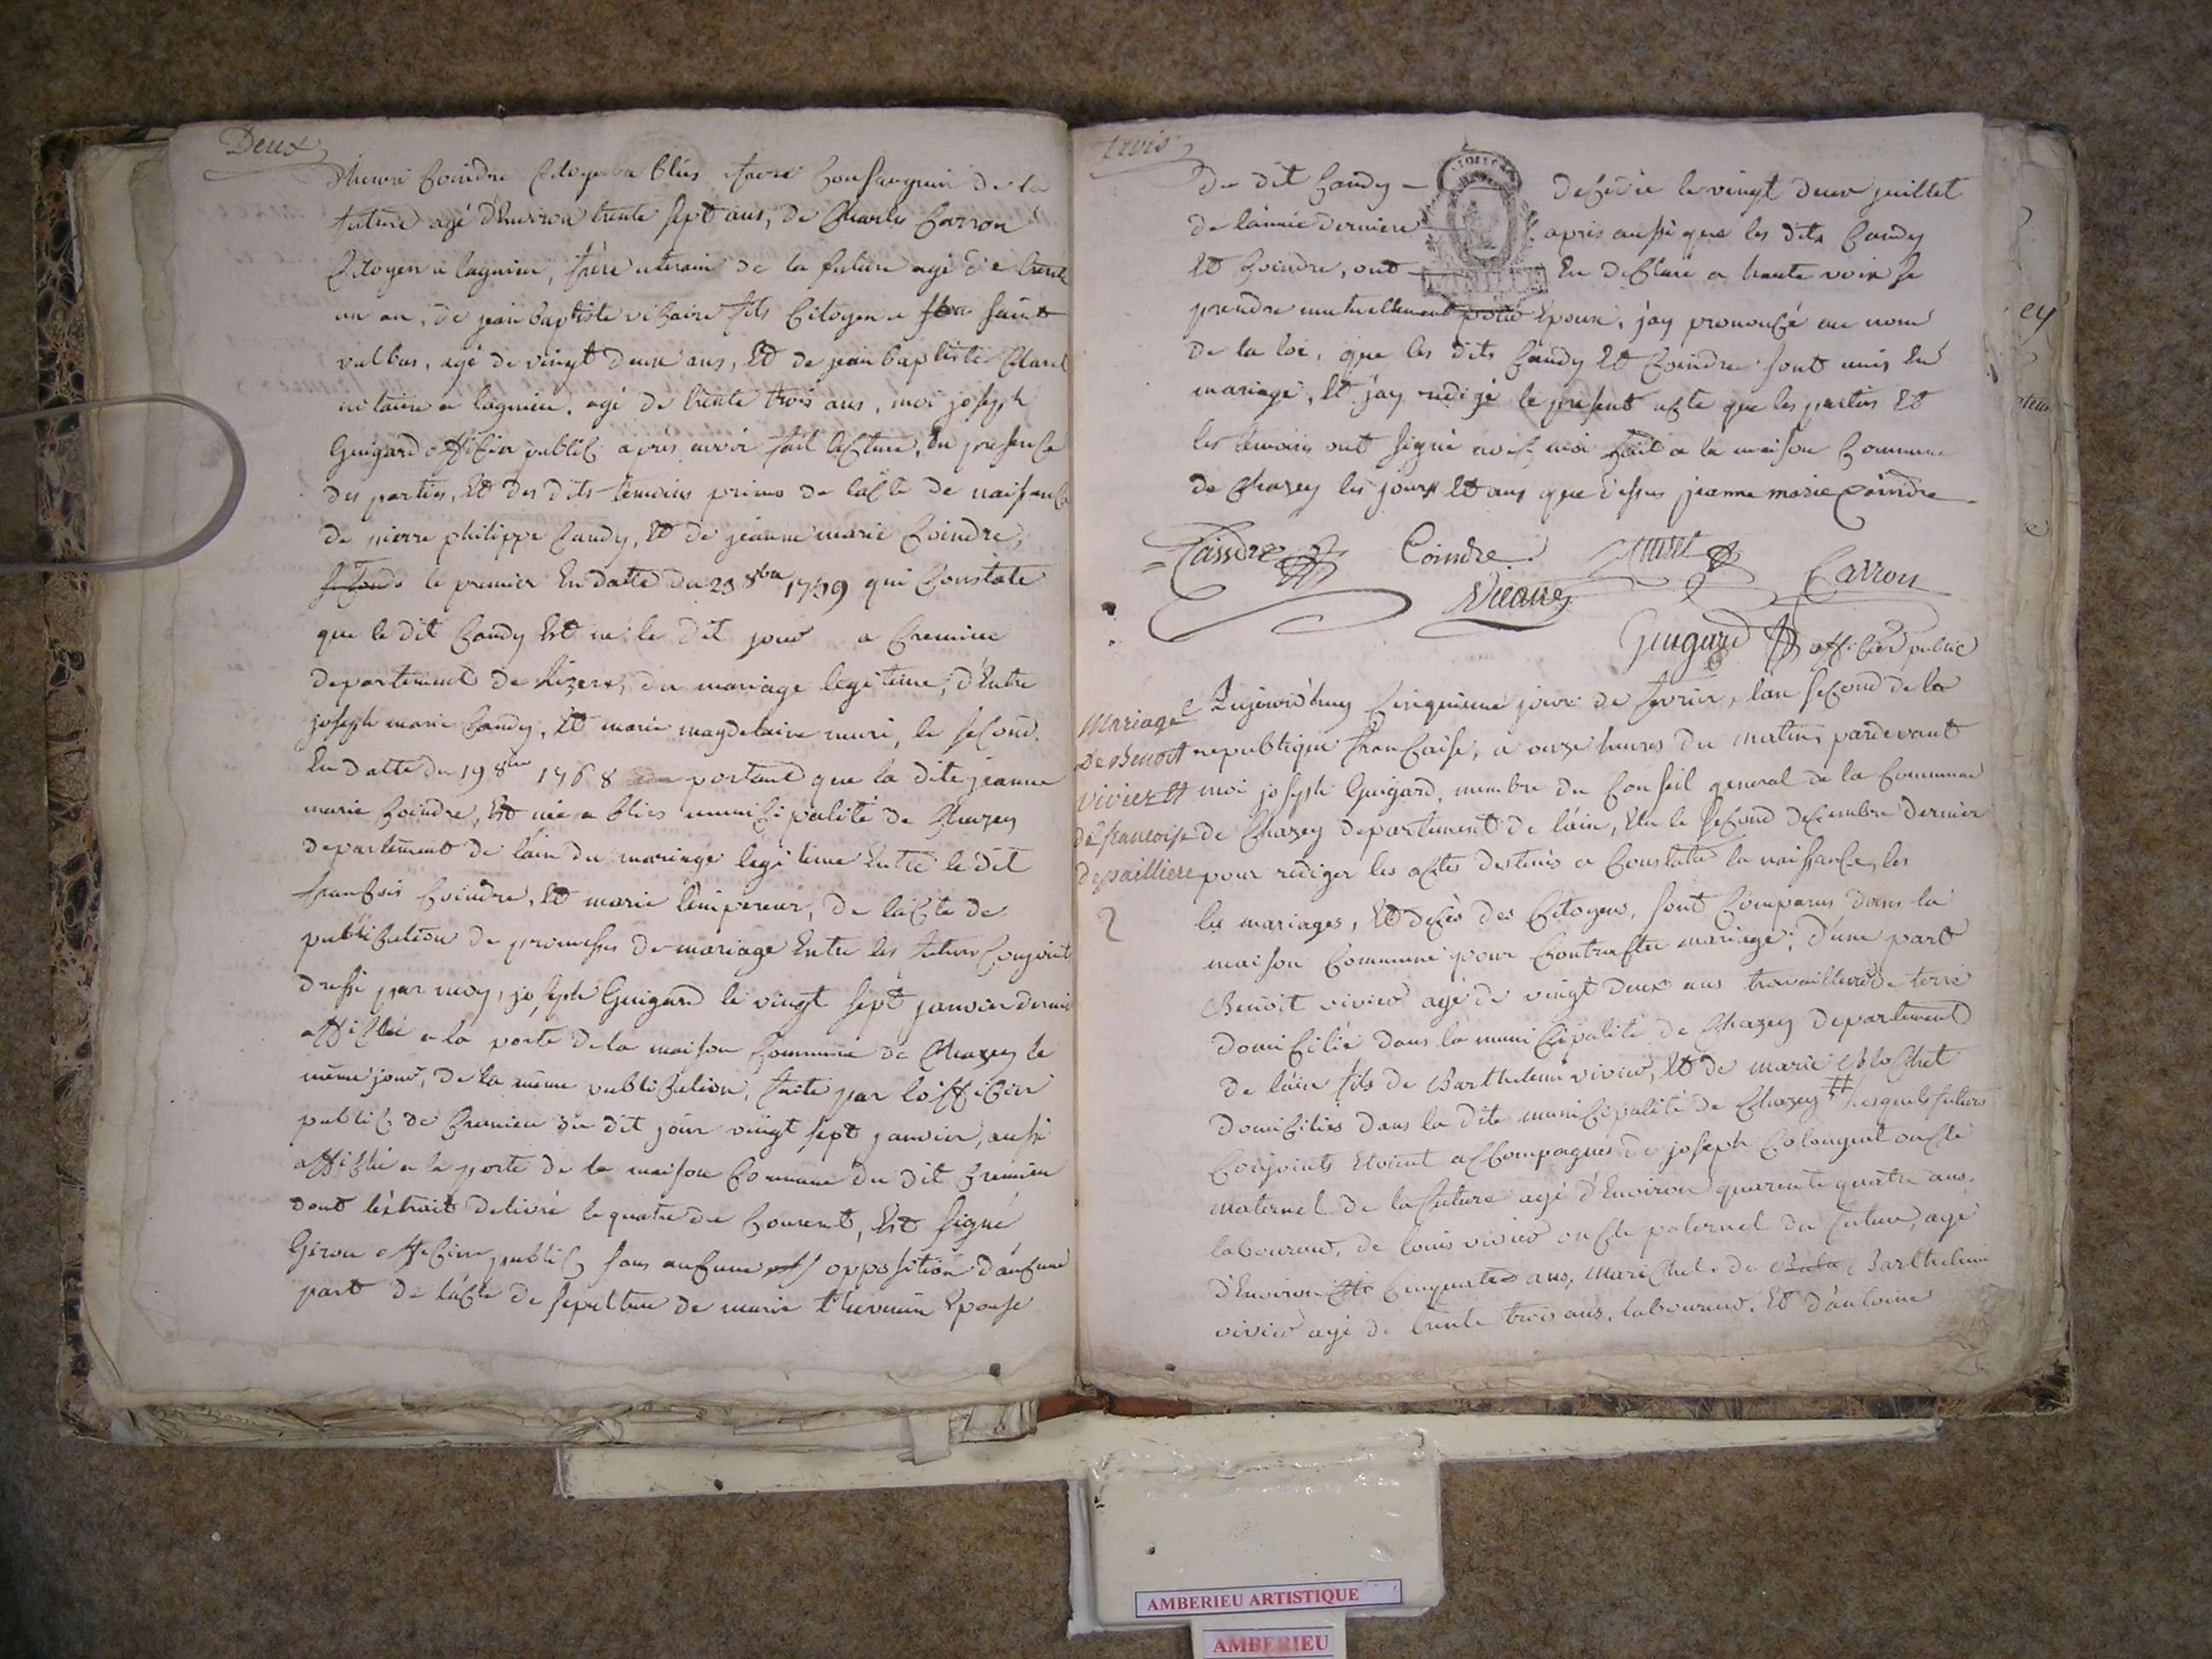 Deux
d'henri Coindre Citoyen a blies frere Consanguin de la
future agé d'Environ trente sept ans, de Charles Carron
Citoyen a lagnieu, frère uterain de la future agé de trente
un an, de jean baptiste vicaire fils Citoyen a saint
vulbas, agé de vingt deux ans, Et de jean baptiste
notaire a lagnieu, agé de trente trois ans, moi joseph
Guigard officier public apres avoir fait lecture, En presence
des parties, Et des dits temoins primo de lacte de naissance
de pierre philippe Candy, Et de jeanne marie Coindre,
le premier En datte du 23 8bre 1739 qui Constate
que le dit Candy Est né le dit jour a Cremieu
departement de Lizere, du mariage legitime, d'Entre
joseph marie Candy, Et marie magdelaine muri, le second
En datte du 19 8bre 1768 portant que la dite jeanne
marie Coindre, Est née a blies municipalité de Chazey
departement de lain du mariage legitime Entre le dit
francois Coindre, Et marie lempereur, de lacte de
publication de promesses de mariage Entre les futurs Conjoints
dressé par moy, joseph Guigard le vingt sept janvier dernier
affiché a la porte de la maison Commune de Chazey le
même jour, de la même publication, faite par lofficier
public de Cremieu du dit jour vingt sept janvier, aussi
affiché a la porte de la maison Commune du dit Cremieu
dont l'extrait delivré le quatre du Courent, Est signé
Girou officier public sans aucune opposition d'aucune
part de lacte de sepulture de marie thevenin Epouse
trois
du dit Candy - decedée le vingt deux juillet
de lannée derniere apres aussi que les dits Candy
Et Coindre, ont En declaré a haute voix se
prendre mutuellement pour Epoux, j'ay prononcé au nom
de la loi, que les dits Candy Et Coindre sont unis En
mariage, Et j'ay redigé le present acte que les parties Et
les temoins ont signé avec moi fait a la maison Commune
de Chazey les jours Et ans que dessus jeanne marie coindre
Coindre
Carron
Vicaire
Guigard officier public
Mariage
de Benoit
vivier Et
de francoise
depailliere
2
Aujourd'huy Cinquieme jour de fevrier, lan second de la
republique francaise, a onze heures du matin, pardevant
moi joseph Guigard, membre du Conseil general de la Commune
de Chazey departement de lain, Elu le second decembre dernier
pour rediger les actes destinés a Constater la naissance, les
les mariages, Et decès des Citoyens, sont Comparus dans la
maison Commune pour Contracter mariage; d'une part
Benoit vivier agé de vingt deux ans travailleur de terre
domicilié dans la municipalité de Chazey departement
de lain fils de Barthelemi vivier, Et de marie Blochet
domiciliés dans la dite municipalité de Chazey # lesquels futurs
Conjoints Etoient accompagnés de joseph Colongeat oncle
maternel de la future agé d'Environ quarente quatre ans,
laboureur, de louis vivier oncle paternel du futur, agé
d'Environ Cinquante ans, marechal, de Barthelemi
vivier agé de trente trois ans, laboureur, Et d'antoine
AMBERIEU ARTISTIQUE
AMBERIEU